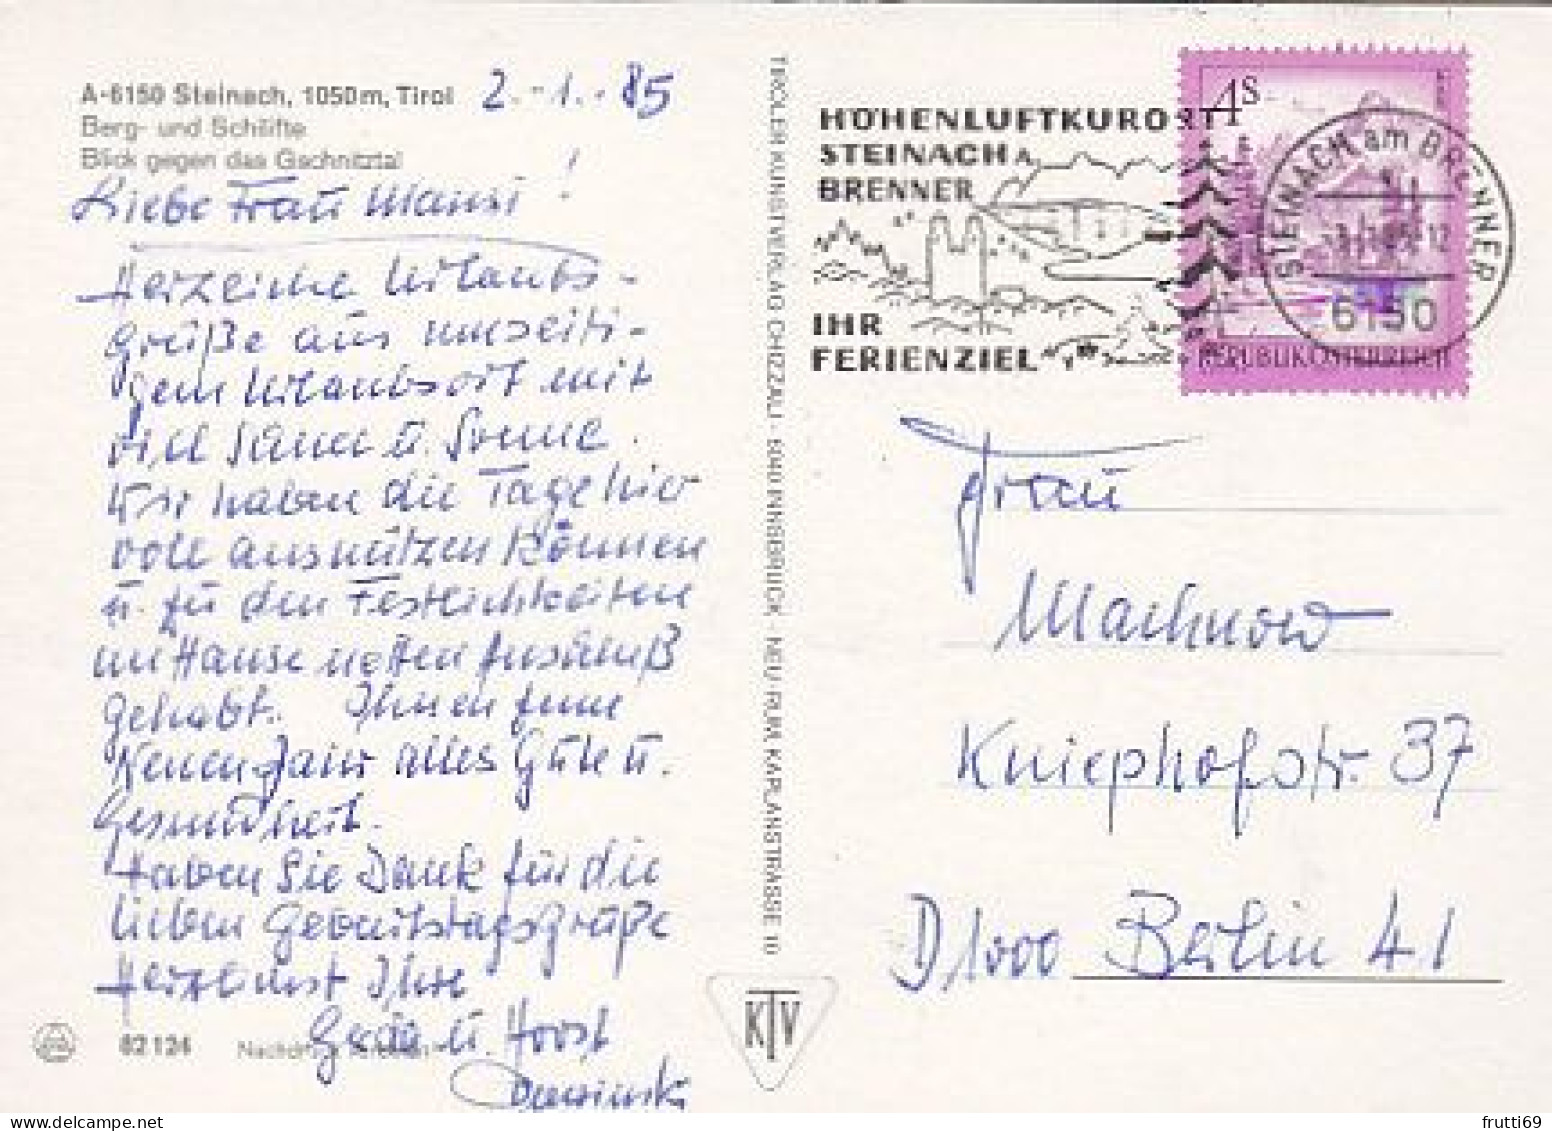 A-6150 Steinach, 1050m, Tirol
Berg- und Schilifte
Blick gegen das Gschnitztal
2.-1.-85
Liebe Frau Mansi!
Herzliche Urlaubs-
grüße aus umseiti-
gem Urlaubsort mit
viel Schnee u. Sonne.
Wir haben die Tage hier
voll ausnützen können
u. zu den Festlichkeiten
im Hause netten
gehabt. Ihnen zum
Neuen Jahr alles Gute u.
Gesundheit.
Haben Sie Dank für die
lieben Geburtstagsgrüße
Herzlichst Ihre
u. Horst
82124
TIROLER KUNSTVERLAG CHIZZALI · 6040 INNSBRUCK - NEU-RUM, KAPLANSTRASSE 10
KTV
HÖHENLUFTKURORT
STEINACH A.
BRENNER
IHR
FERIENZIEL
4S
REPUBLIK ÖSTERREICH
STEINACH am BRENNER
6150
Frau
Machnow
Kniephofstr. 37
D 1000 Berlin 41
frutti69